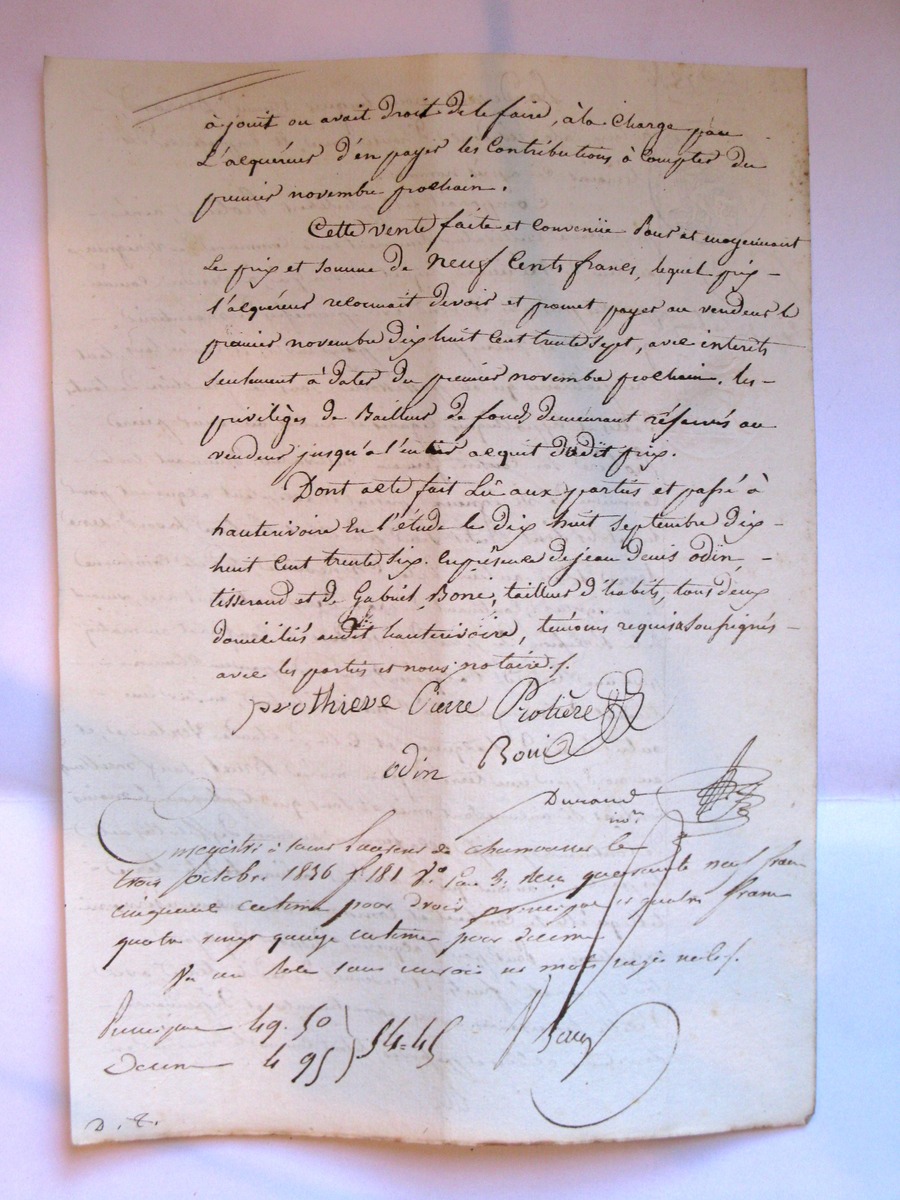 a jouit ou avait droit de le faire, à la charge par
L'acquéreur d'en payer les Contributions à Compter du
premier novembre prochain.
Cette vente faite et convenüe Pour et moyennant
Le prix et somme de neuf Cents francs, lequel prix -
l'acquéreur reconnait devoir et promet payer au vendeur le
premier novembre dix huit Cent trente sept, avec interets
seulement à dater du premier novembre prochain. les -
privilèges de Bailleur de fond demeurant réservés au
vendeur jusqu'a l'entier acquit dudit prix.
Dont acte fait Lû aux parties et passé à
hauterivoire En l'étude le dix huit septembre dix -
huit Cent trente six. en présence de jean denis odin -
tisserand et de Gabriel Boni, tailleur d'habits, tous deux
domiciliés audit hauterivoire, témoins requis & soussignés -
avec les parties et nous notaire ./.
prothiere Pierre Protière
odin Boni
Durand
nre
Enregistré à saint Laurent de chamousset le
trois octobre 1836 f. 181 Vo Case 3. Reçu quarante neuf francs
cinquante centimes pour droit principal et quatre francs
quatre vingt quinze centimes pour décime
Vu un Role sans renvoi ni mots rayés nuls ./.
Principal 49.50
Décime 4 95
54=45
D. T.